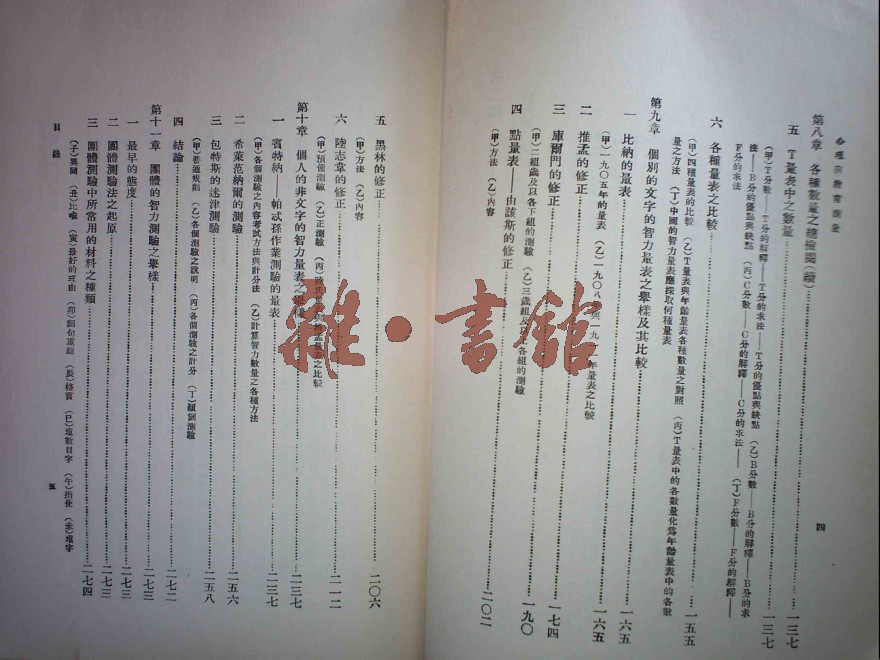 心理與教育測量
四
第八章 各種數量之總檢閱（續）
五 T量表中之數量……一三七
（甲）T分數——T分的解釋——T分的求法——T分的優點與缺點 （乙）B分數——B分的解釋——B分的求
法——B分的優點與缺點 （丙）C分數——C分的解釋——C分的求法—— （丁）F分數——F分的解釋——
F分的求法
六 各種量表之比較……一五五
（甲）四種量表的比較 （乙）T量表與年齡量表各種數量之對照 （丙）T量表中的各數量化爲年齡量表中的各數
量之方法 （丁）中國的智力量表應採取何種量表
第九章 個別的文字的智力量表之舉樣及其比較……一六五
一 比納的量表……一六五
（甲）一九〇五年的量表 （乙）一九〇八年與一九一一年量表之比較
二 推孟的修正……一六五
三 庫爾門的修正……一七四
（甲）二組歲及以各下組的測驗 （乙）三歲組及以上各組的測驗
四 點量表——由該斯的修正……一九〇
（甲）方法 （乙）內容
五 黑林的修正……二〇二
（甲）方法 （乙）內容
六 陸志韋的修正……二〇六
（甲）預備測驗 （乙）正測驗 （丙）陸氏量表與推孟量表之比較
第十章 個人的非文字的智力量表之舉樣……二三七
一 賓特納——帕忒孫作業測驗的量表……二三七
（甲）各個測驗之內容考試方法與計分法 （乙）計算智力數量之各種方法
二 希萊范納爾的測驗……二五六
三 包特斯的迷津測驗……二五八
（甲）普通規則 （乙）各個測驗之說明 （丙）各個測驗之計分 （丁）顛倒測驗
四 結論……二七二
第十一章 團體的智力測驗之舉樣……二七三
一 最早的態度……二七三
二 團體測驗法之起原……二七三
三 團體測驗中所常用的材料之種類……二七四
（子）異同 （丑）比喻 （寅）最好的理由 （卯）詞句重組 （辰）格言 （巳）填數目字 （午）指使 （未）填字
目錄
五
雜·書館